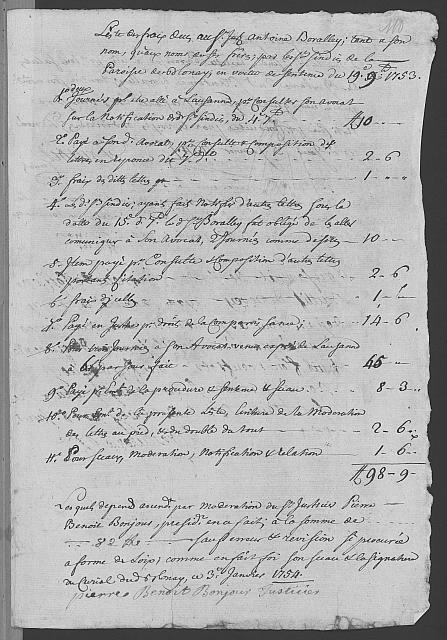 Liste des fraix deus au Sr. Jaq. Antoine Boralley; tant a son
nom, qu'aux noms de ses freres; par les Srs. Sindics de la
Paroisse de Blonay, en vertu de Sentence du 19e. 9e. 1753.
1o. pr. deux Journées pr. etre allé a Lausanne, pr. Consulter son Avocat
sur la Notification des dts. Sindics, du 4e. 7e. ₶10 --
2o. Payé a son d. Avocat, pr. Consulte & Composition des
lettres en reponce du 7e. 2 - 6
3o. fraix des dittes lettres 1 -
4o. Les dts. Sindics; ayant fait Notifié d'autres lettres sous la
datte du 15e. d. le Sr. Boralley fut obligé de les aller
comuniquer a son Avocat, 2 Journées comme dessus 10 --
5o. Item payé pr. Consulte & Composition d'autres lettres
portant Citation 2 - 6
6o. fraix d'icelles 1 -
7o. Payé en Justice pr. droit de la comparoissance; 14 - 6
8o. Pour trois Journées a son Avocat venu exprès de Lausanne
a par Jour, fait 45 --
9o. Payé de la procedure & sentence & Sceau 8 - 3
10o. Pour de la presente Liste, Ecriture de la Moderation
en lettre au pied, & du double du tout 2 - 6
11o. Pour Sceau, Moderation, Notification & relation 1 - 6
₶98 - 9 -
Lesquels depend par Moderation du Sr. Justicier Pierre
Benoit Bonjour, presidt. en a fait; a la somme de
sauf erreur & revision si procurée
a forme de Loix; comme en fait foi son Sceau & la Signature
du Curial dud. Blonay, ce 3e. Janvier 1754.
pierre Benoit Bonjour Justicier